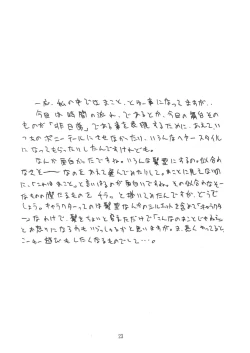 一応、私の中ではまこと、とゆー事になってますが、
今回は時間の流れ、であるとか、今回の舞台その
ものが「非日常」である事を表現するために、あえていつ
ものポニーテールにはせなかったり、いろんなヘアースタイル
になってもらったりしたんですけれども。
なんか面白かったですね。いろんな髪型にするの。似合わ
なそーーなのをあえて選んでみたりして。まことに見えない
に、「これはまこと」と言いはるのが面白いですね。その似合わなそー
なものの際たるものを チラッ と描いてみたんですが、どうで
しょう。キャラクターってのは髪型なんかのシルエットを含めて「キャラクタ
ー」なわけで、髪をちょいと変えただけで「こんなのまことじゃねェ」
とお怒りになる方もいらっしゃるかと思いますが。ま、長くやってると
こーゆー遊びもしたくなるものでして…。
23